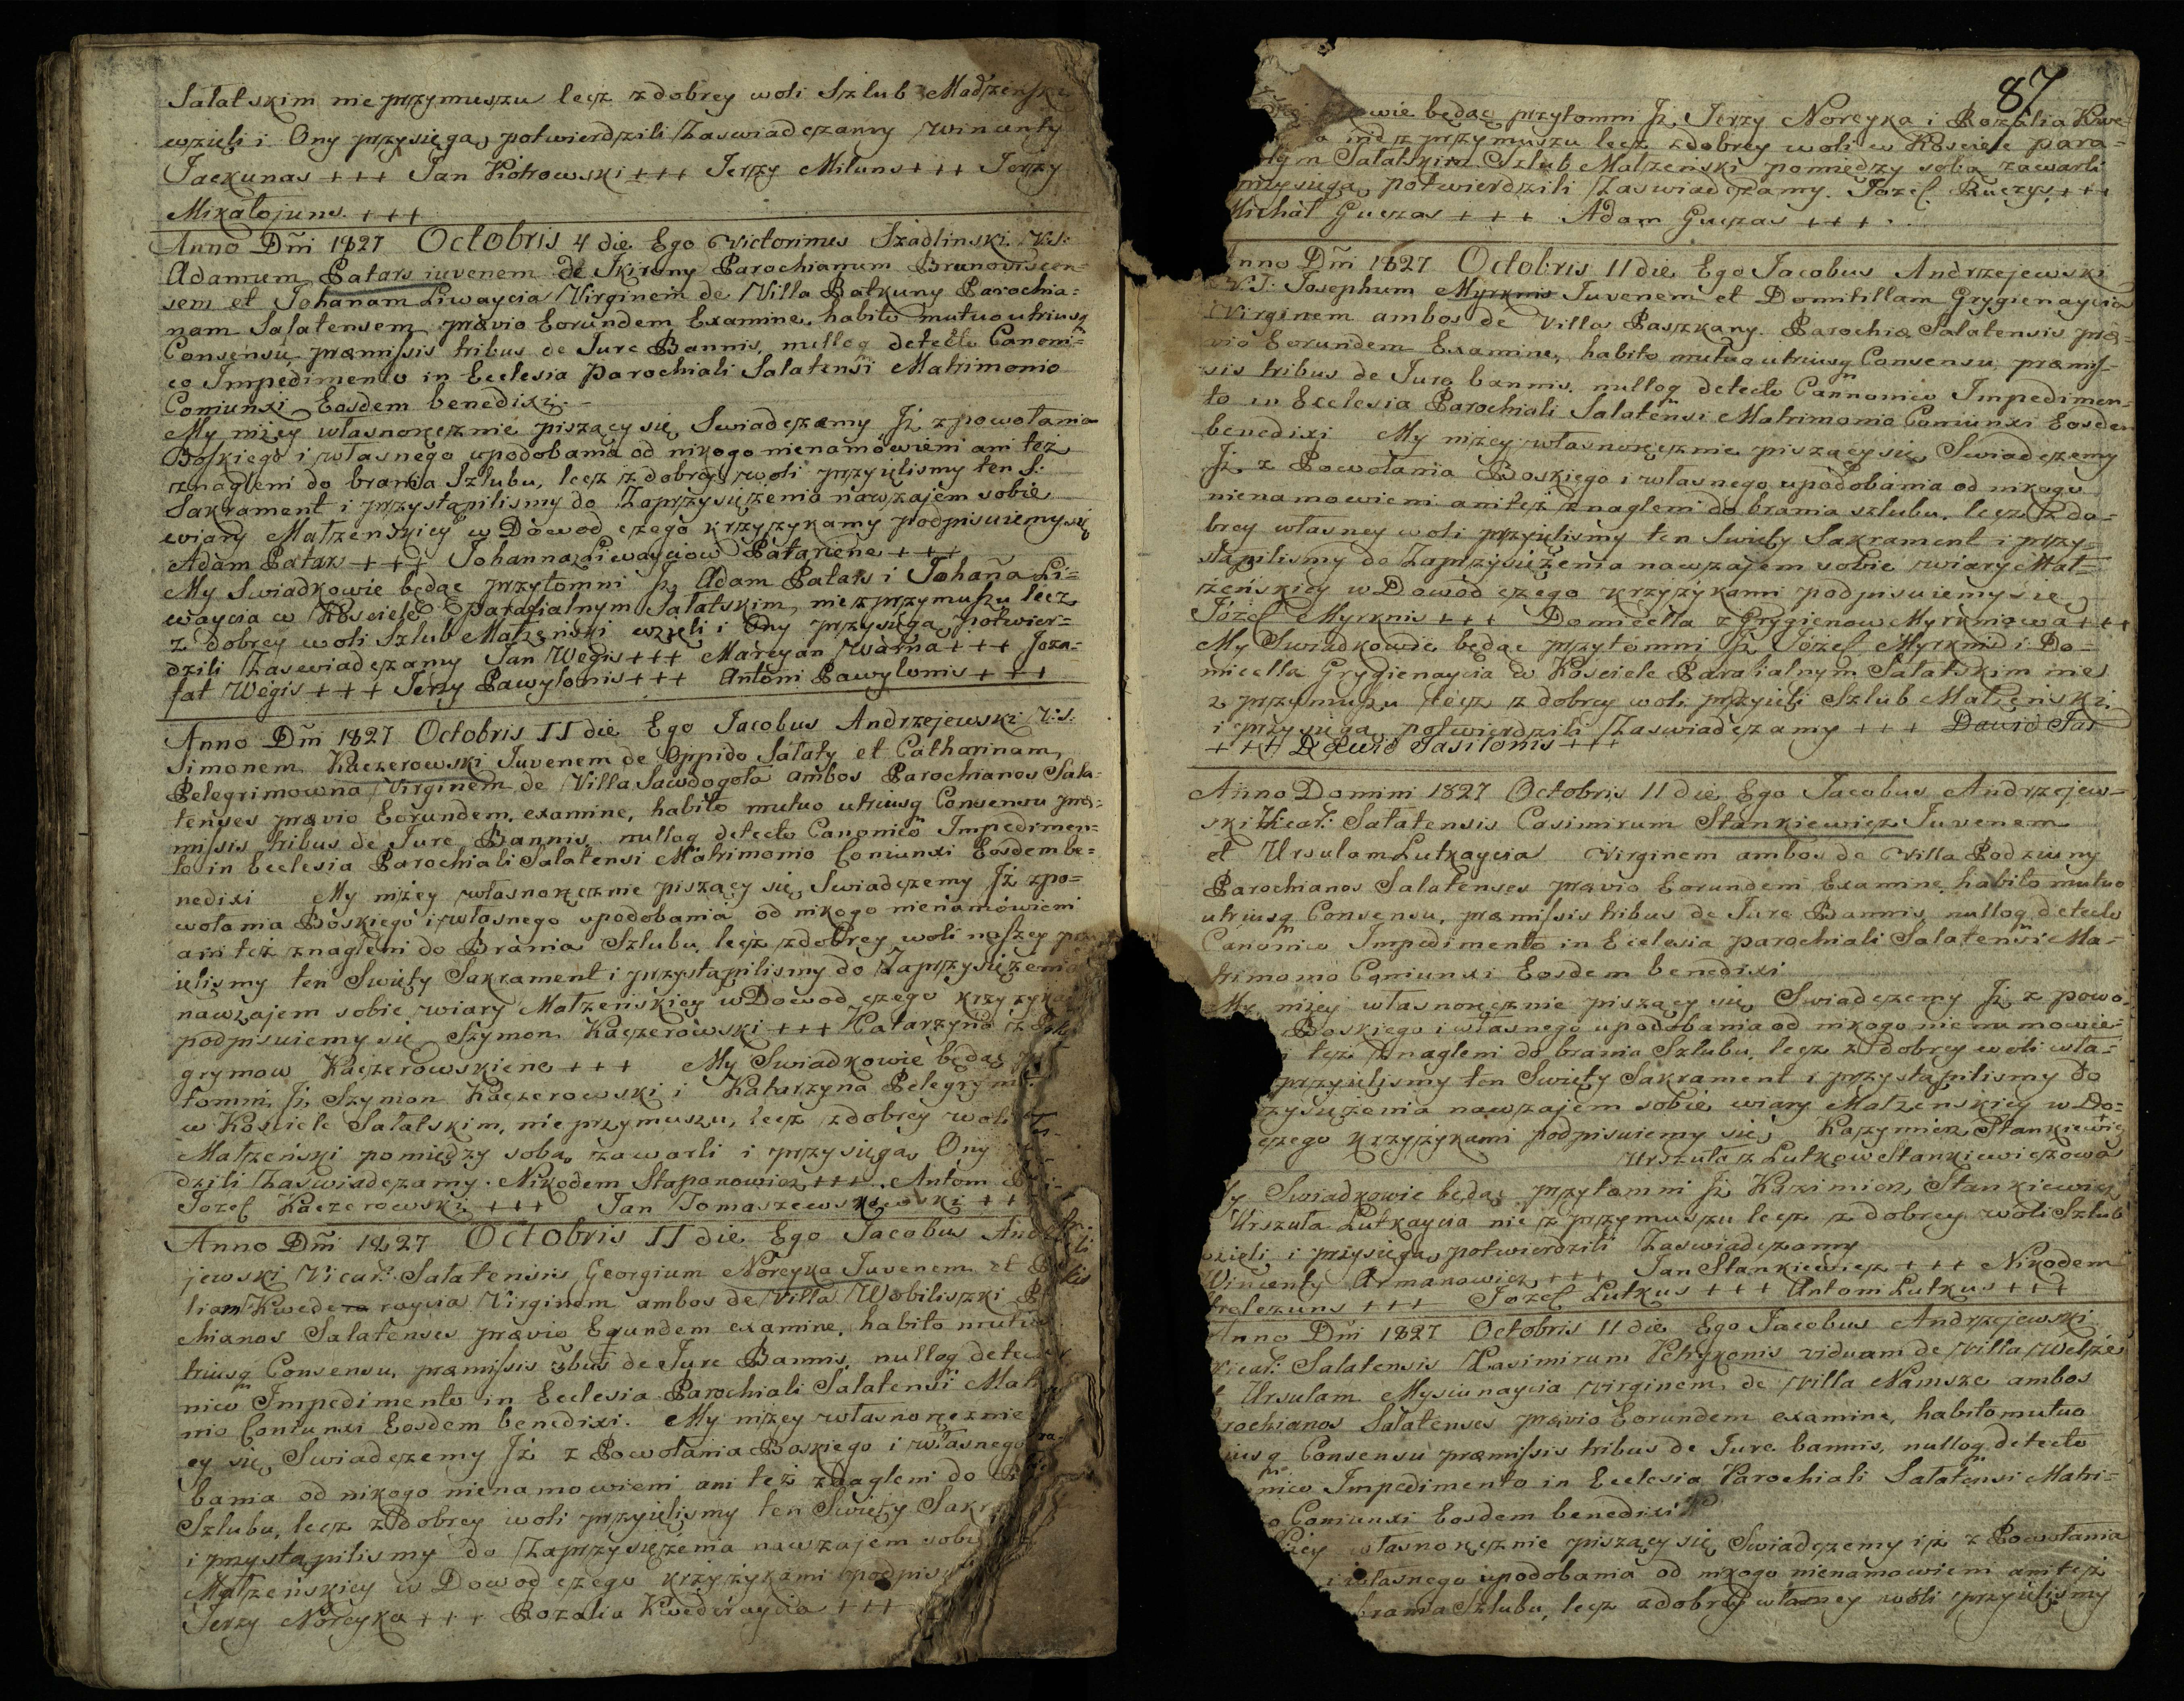 Sałatskim nieprzymuszu lecz z dobrey woli Szlub Madżenske
wzieli i Ony przysięgą potwierdzili Zaswiadczamy Winunty
Jackunas +++ Jan Piotrowski +++ Jerzy Miluns +++ Jerzy
Mikałojuns. +++
Anno Dñi 1827 Octobris 4 die Ego Victorimus Szadlinski V:S:
Adamum Patars iuvenem de Skirony Parochianum Brunoviscen-
sem et Johanam Liwaycia Virginem de Villa Batkuny Parochia=
nam Salatensem prævio Eorundem Examine, habito mutuo utriusq
Consensu præmissis tribus de Jure Bannis, nulloq detecto Canoni=
co Impedimento in Ecclesia Parochiali Salatensi Matrimonio
Coniunxi Eosdem benedixi. -
My niżey własnoręcznie piszący się Swiadczamy Jż z powołania
Boskiego i własnego upodobania od nikogo nienamówieni ani też
znagleni do brania Szlubu, lecz z dobrey woli przyielismy ten S:
Sakrament i przystąpilismy do Zaprzysiężenia nawzajem sobie
wiary Małżenskiey w Dowod czego krzyzykamy podpisuiemy się
Adam Patar +++ Johanna z Liwayciow Patariene +++
My Swiadkowie będąc przytomni Jż Adam Patars i Johana Li=
waycia w Kosciele Parafialnym Sałatskim, nie z przymuszu lecz
z dobrey woli Szlub Małżenski wzieli i Ony przysięgą potwier=
dzili Zaswiadczamy Jan Wegis +++ Marcyan Warna +++ Joza=
fat Wegis +++ Jerzy Pawylonis +++ Antoni Pawylonis +++
Anno Dñi 1827 Octobris II die Ego Jacobus Andrzejewski V:S:
Simonem Kaczerowski Juvenem de Oppido Sałaty et Catharinam
Pelegrimowna Virginem de Villa Sawdogoła ambos Parochianos Sala-
tenses prævio Eorundem examine, habito mutuo utriusq Consensu præ=
missis tribus de Jure Bannis, nulloq detecto Canonico Impedimen=
to in Ecclesia Parochiali Salatensi Matrimonio Coniunxi Eosdem be=
nedixi My niżey własnoręcznie piszący się Swiadczemy Jż z po=
wołania Boskiego i własnego upodobania od nikogo nienamówieni
ani też znagleni do Brania Szlubu lecz z dobrey woli naszey
ielismy ten Swięty Sakrament i przystąpilismy do Zaprzysiężenia
nawzajem sobie wiary Małżenskiey w Dowod czego
podpisuiemy się Szymon Kaczerowski +++ Katarzyna z
grymow Kaczerowskiene +++ My Swiadkowie będąc
tomni Jż Szymon Kaczerowski i Katarzyna
w Kosciele Sałatskim, nieprzymuszu, lecz z dobrey woli
Małżenski pomiędzy sobą zawarli i przysięgą Ony
dzili Zaswiadczamy. Nikodem Stapanowicz +++ Antoni
Jozef Kaczerowski +++ Jan Tomaszewski ++
Anno Dñi 1827 Octobris II die Ego Jacobus
jewski Vicari: Salatensis Georgium Noreyka Juvenem et
liam Kwederaycia Virginem ambos de Villa Wobiliszki
chianos Salatenses prævio Eorundem examine, habito mutuo
triusq Consensu, præmissis 3bus de Jure Bannis, nulloq
nico Impedimento in Ecclesia Parochiali Salatensi
nio Coniunxi Eosdem benedixi. My niżey własnoręcznie
cy się Swiadczemy Jż z Powołania Boskiego i własnego
bania od nikogo nienamowieni ani też znagleni do
Szlubu, lecz z dobrey woli przyielismy ten Swięty
i przystąpilismy do Zaprzysiężenia nawzajem
Małżenskiey w Dowod czego krzyzykami
Jerzy Noreyka +++ Rozalia Kwederaycia +++
87
będąc przytomni Jż Jerzy Noreyka i Rozalia Kwe=
nie z przymuszu lecz z dobrey woli w Kosciele para=
Sałatskim Szlub Małżenski pomiędzy sobą zawarli
przysięgą potwierdzili Zaswiadczamy. Jozef Ruczys +++
Michał Guczas +++ Adam Guczas +++.
Anno Dñi 1827 Octobris 11 die Ego Jacobus Andrzejewski
V:S: Josephum Myrknis Juvenem et Domitillam Grygienaycia
Virginem ambos de Villa Paszkany. Parochiæ Salatensis præ=
vio Eorundem Examine, habito mutuo utriusq Consensu, præmis=
sis tribus de Jure bannis, nulloq detecto Cannonico Impedimen=
to in Ecclesia Parochiali Salatensi Matrimonio Coniunxi Eosdem
benedixi My niżey własnoręcznie piszący się Swiadczemy
Jż z Powołania Boskiego i własnego upodobania od nikogo
nienamowieni ani też znagleni do brania szlubu, lecz z do=
brey własney woli przyielismy ten Swięty Sakrament i przy=
stąpilismy do Zaprzysiężenia nawzajem sobie wiary Mał=
żenskiey w Dowod czego krzyżykami podpisuiemy się
Józef Myrknis +++ Domicella z Grygienow Myrkniowa +++
My Swiadkowie będąc przytomni Jż Józef Myrknis i Do=
micella Grygienaycia w Kosciele Parafialnym Sałatskim nie
z przymuszu lecz z dobrey woli przyieli Szlub Małżenski
i przysięgą potwierdzili Zaswiadczamy +++ Dawid Jas
+++ Dawid Jasilonis +++
Anno Domini 1827 Octobris 11 die Ego Jacobus Andrzejew=
ski Vicari: Salatensis Casimirum Stankiewicz Juvenem
et Ursulam Lutkaycia Virginem ambos de Villa Podziuny
Parochianos Salatenses prævio Eorundem Examine, habito mutuo
utriusq Consensu, præmissis tribus de Jure Bannis nulloq detecto
Canonico Impedimento in Ecclesia parochiali Salatensi Ma=
trimonio Coniunxi Eosdem benedixi
My niżey własnoręcznie piszący się Swiadczemy Jż z powo-
Boskiego i własnego upodobania od nikogo nienamowie-
też znagleni do brania Szlubu, lecz z dobrey woli wła-
przyielismy ten Swięty Sakrament i przystąpilismy do
zysiężenia nawzajem sobie wiary Małżenskiey w Do=
czego krzyżykami podpisuiemy się Kazymierz Stankiewicz
Urszula z Lutkow Stankiewiczowa
Swiadkowie będąc przytomni Jż Kazimierz Stankiewicz
Urszula Lutkaycia nie z przymuszu lecz z dobrey woli Szlub
wzieli i przysięgą potwierdzili Zaswiadczamy
Wincenty Armanowicz +++ Jan Stankiewicz +++ Nikodem
+++ Jozef Lutkus +++ Antoni Lutkus +++
Anno Dñi 1827 Octobris 11 die Ego Jacobus Andrzejewski
Vicari: Salatensis Kasimirum Petrykonis viduum de Villa Wełże
Ursulam Mysiunaycia Virginem de Villa Namsze ambos
rochianos Salatenses prævio Eorundem examine, habito mutuo
iusq Consensu præmissis tribus de Jure bannis, nulloq detecto
nico Impedimento in Ecclesia Parochiali Salatensi Matri=
o Coniunxi Eosdem benedixi
własnoręcznie piszący się Swiadczemy iż z Powołania
i własnego upodobania od nikogo nienamowieni ani też
brania Szlubu, lecz z dobrey własney woli przyielismy